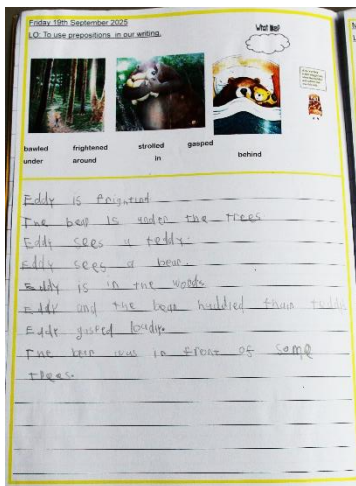 Friday 19th September 2025
LO: To use prepositions in our writing.
bawled frightened strolled gasped
under around in behind
Eddy is frightind
The bear is under the trees
Eddy sees a teddy.
Eddy sees a bear.
Eddy is in the woods
Eddy and the bear huddled thair teddy
Eddy gasped loudly.
The bear was in front of some
trees.